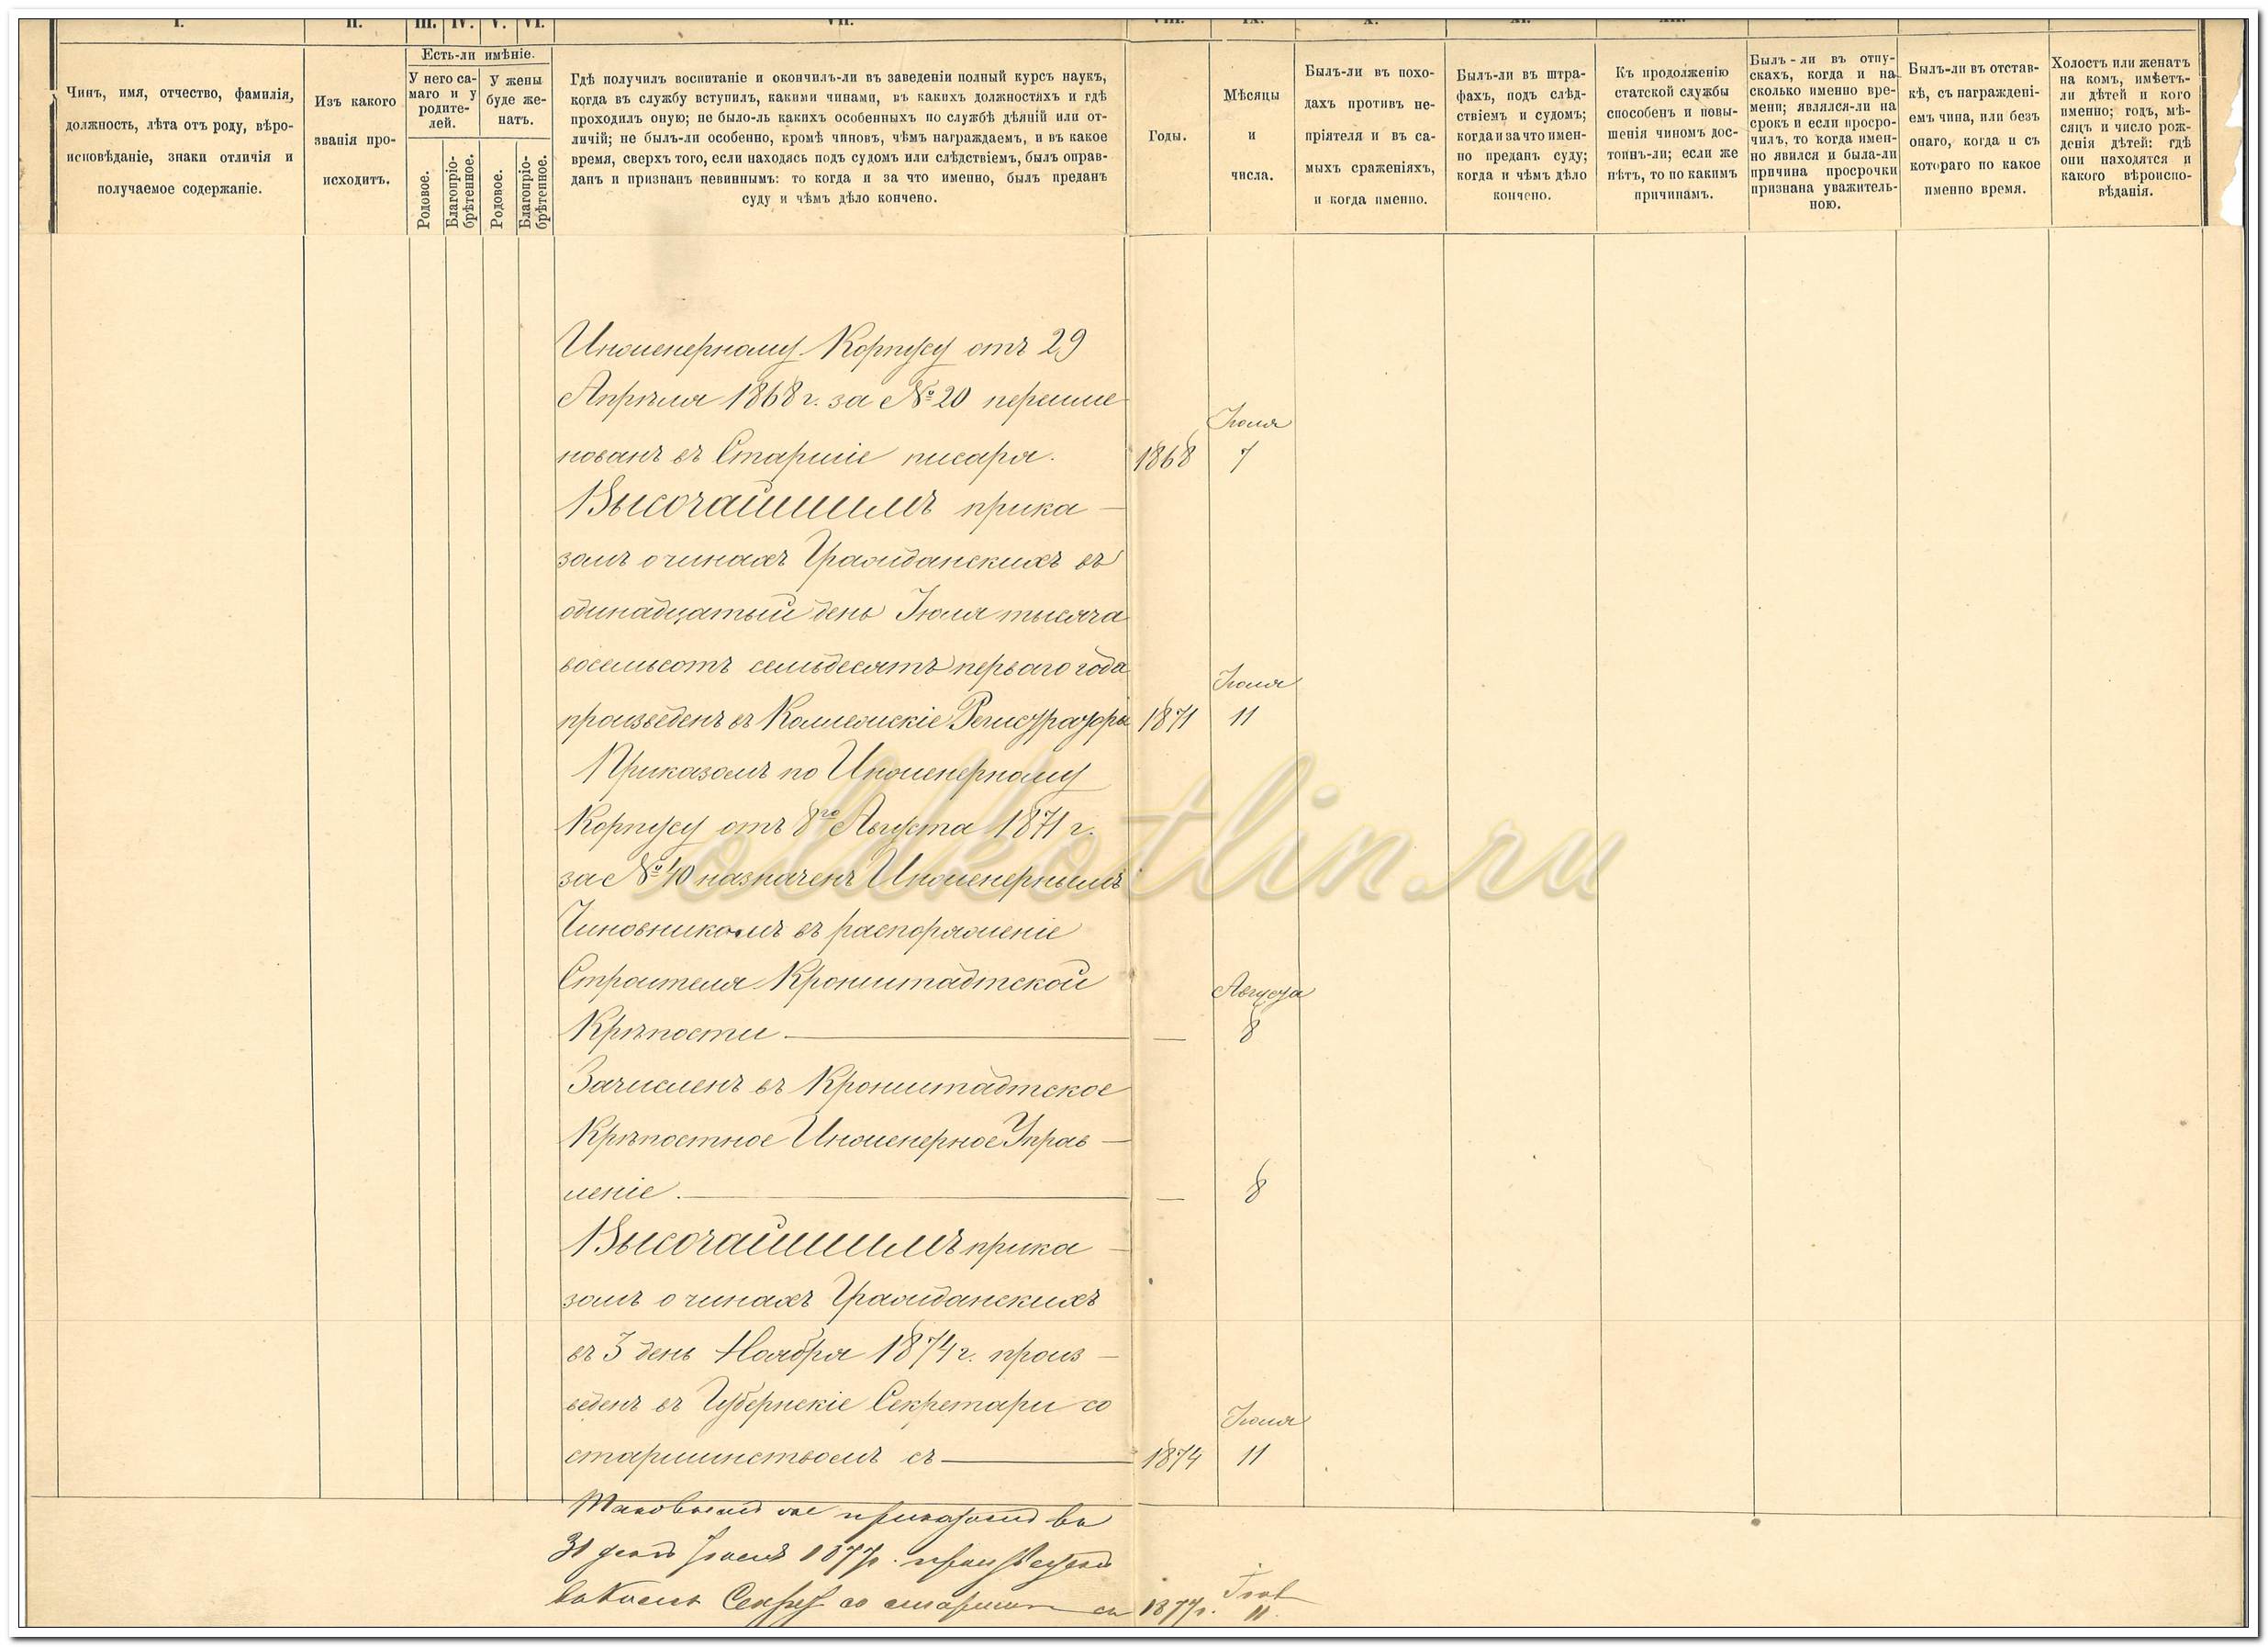 I.
II.
III.
IV.
V.
VI.
VII.
VIII.
IX.
X.
XI.
XII.
Чинъ, имя, отчество, фамилія,
должность, лѣта отъ роду, вѣро-
исповѣданіе, знаки отличія и
получаемое содержаніе.
Изъ какого
званія про-
исходитъ.
Есть-ли имѣніе.
У него са-
маго и у
родите-
лей.
У жены
буде же-
натъ.
Родовое.
Благопріо-
брѣтенное.
Родовое.
Благопріо-
брѣтенное.
Гдѣ получилъ воспитаніе и окончилъ-ли въ заведеніи полный курсъ наукъ,
когда въ службу вступилъ, какими чинами, въ какихъ должностяхъ и гдѣ
проходилъ оную; не было-ль какихъ особенныхъ по службѣ дѣяній или от-
личій; не былъ-ли особенно, кромѣ чиновъ, чѣмъ награждаемъ, и въ какое
время, сверхъ того, если находясь подъ судомъ или слѣдствіемъ, былъ оправ-
данъ и признанъ невиннымъ: то когда и за что именно, былъ преданъ
суду и чѣмъ дѣло кончено.
Годы.
Мѣсяцы
и
числа.
Былъ-ли въ похо-
дахъ противъ не-
пріятеля и въ са-
мыхъ сраженіяхъ,
и когда именно.
Былъ-ли въ штра-
фахъ, подъ слѣд-
ствіемъ и судомъ;
когда и за что имен-
но преданъ суду;
когда и чѣмъ дѣло
кончено.
Къ продолженію
статской службы
способенъ и повы-
шенія чиномъ дос-
тоинъ-ли; если же
нѣтъ, то по какимъ
причинамъ.
Былъ-ли въ отпу-
скахъ, когда и на
сколько именно вре-
мени; являлся-ли на
срокъ и если просро-
чилъ, то когда имен-
но явился и была-ли
причина просрочки
признана уважитель-
ною.
Былъ-ли въ отстав-
кѣ, съ награжденi-
емъ чина, или безъ
онаго, когда и съ
котораго по какое
именно время.
Холостъ или женатъ
на комъ, имѣетъ-
ли дѣтей и кого
именно; годъ, мѣ-
сяцъ и число рож-
денія дѣтей: гдѣ
они находятся и
какого вѣроиспо-
вѣданія.
Инженерному Корпусу отъ 29
Апрѣля 1868 г. за № 20 переиме
нованъ въ Старшіе писаря. 1868 Іюля 7
Высочайшимъ прика-
зомъ о чинахъ Гражданскихъ въ
одинадцатый день Іюля тысяча
восемьсотъ семьдесятъ перваго года
произведенъ въ Коллежскіе Регистраторы 1871 Іюля 11
Приказомъ по Инженерному
Корпусу отъ 8го Августа 1871 г.
за № 40 назначенъ Инженернымъ
Чиновникомъ въ распоряженіе
Строителя Кронштадтской
Крѣпости. — Августа 8
Зачисленъ въ Кронштадтское
Крѣпостное Инженерное Управ-
леніе. — 8
Высочайшимъ прика-
зомъ о чинахъ Гражданскихъ
въ 3 день Ноября 1874 г. произ-
веденъ въ Губернскіе Секретари со
старшинствомъ съ 1874 Іюля 11
Таковымъ же приказомъ въ
31 день 1877 г. произведенъ
въ Колл. Секрет со старшин съ 1877 г. 11
oldkotlin.ru